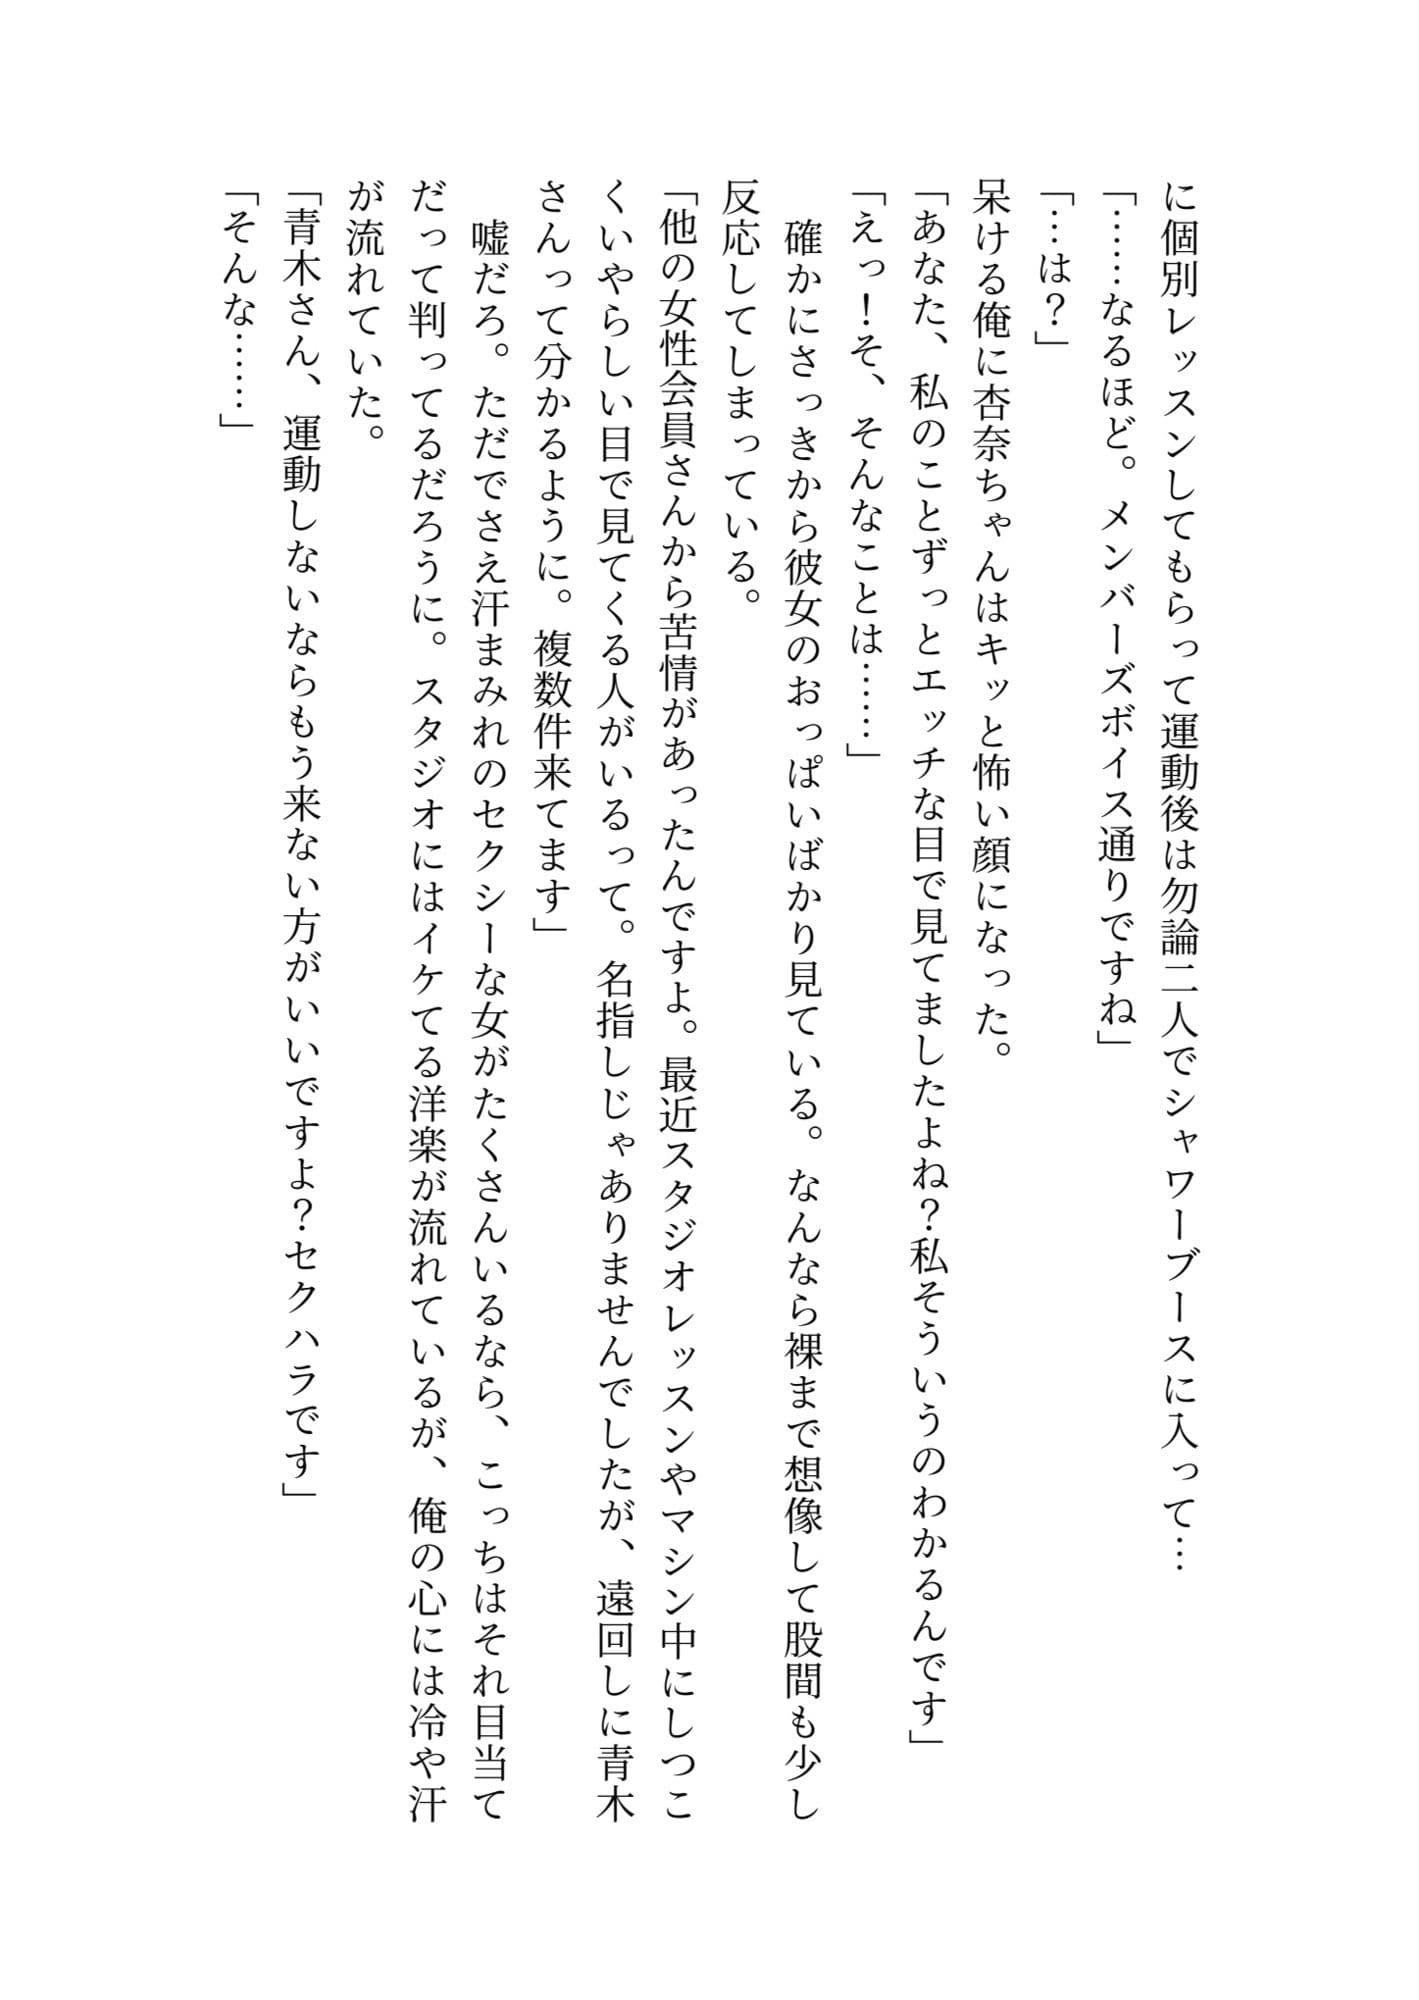 に個別レッスンしてもらって運動後は勿論二人でシャワーブースに入って…
「……なるほど。メンバーズボイス通りですね」
「…は？」
呆ける俺に杏奈ちゃんはキッと怖い顔になった。
「あなた、私のことずっとエッチな目で見てましたよね？私そういうのわかるんです」
「えっ！そ、そんなことは……」
　確かにさっきから彼女のおっぱいばかり見ている。なんなら裸まで想像して股間も少し
反応してしまっている。
「他の女性会員さんから苦情があったんですよ。最近スタジオレッスンやマシン中にしつこ
くいやらしい目で見てくる人がいるって。名指しじゃありませんでしたが、遠回しに青木
さんって分かるように。複数件来てます」
　嘘だろ。ただでさえ汗まみれのセクシーな女がたくさんいるなら、こっちはそれ目当て
だって判ってるだろうに。スタジオにはイケてる洋楽が流れているが、俺の心には冷や汗
が流れていた。
「青木さん、運動しないならもう来ない方がいいですよ？セクハラです」
「そんな……」